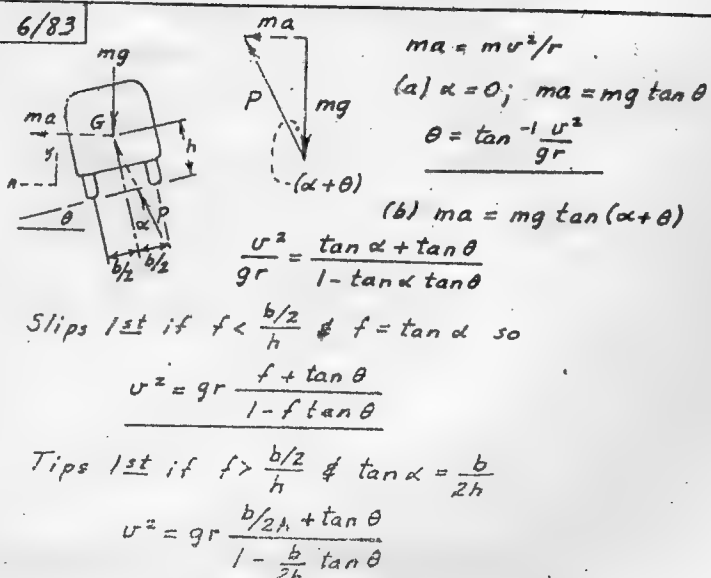 6/83
mg
ma
G
h
y
n
θ
α
P
b/2
b/2
ma
P
mg
(α+θ)
ma = mv²/r
(a) α = 0; ma = mg tan θ
θ = tan⁻¹ v²/gr
(b) ma = mg tan(α+θ)
v²/gr = (tan α + tan θ)/(1 - tan α tan θ)
Slips 1st if f < (b/2)/h & f = tan α so
v² = gr (f + tan θ)/(1 - f tan θ)
Tips 1st if f > (b/2)/h & tan α = b/2h
v² = gr (b/2h + tan θ)/(1 - b/2h tan θ)